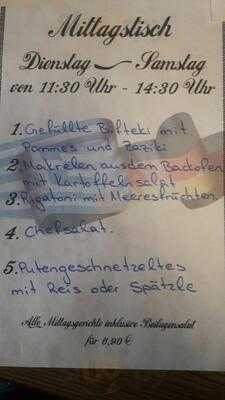 Mittagstisch
Dienstag – Samstag
von 11:30 Uhr - 14:30 Uhr
1. Gefüllte Bifteki mit
Pommes und Zaziki
2. Makrelen aus dem Backofen
mit Kartoffelnsalat
3. Rigatoni mit Meeresfrüchten
4. Chefsalat.
5. Putengeschnetzeltes
mit Reis oder Spätzle
Alle Mittagsgerichte inklusive Beilagensalat
für 6,90 €